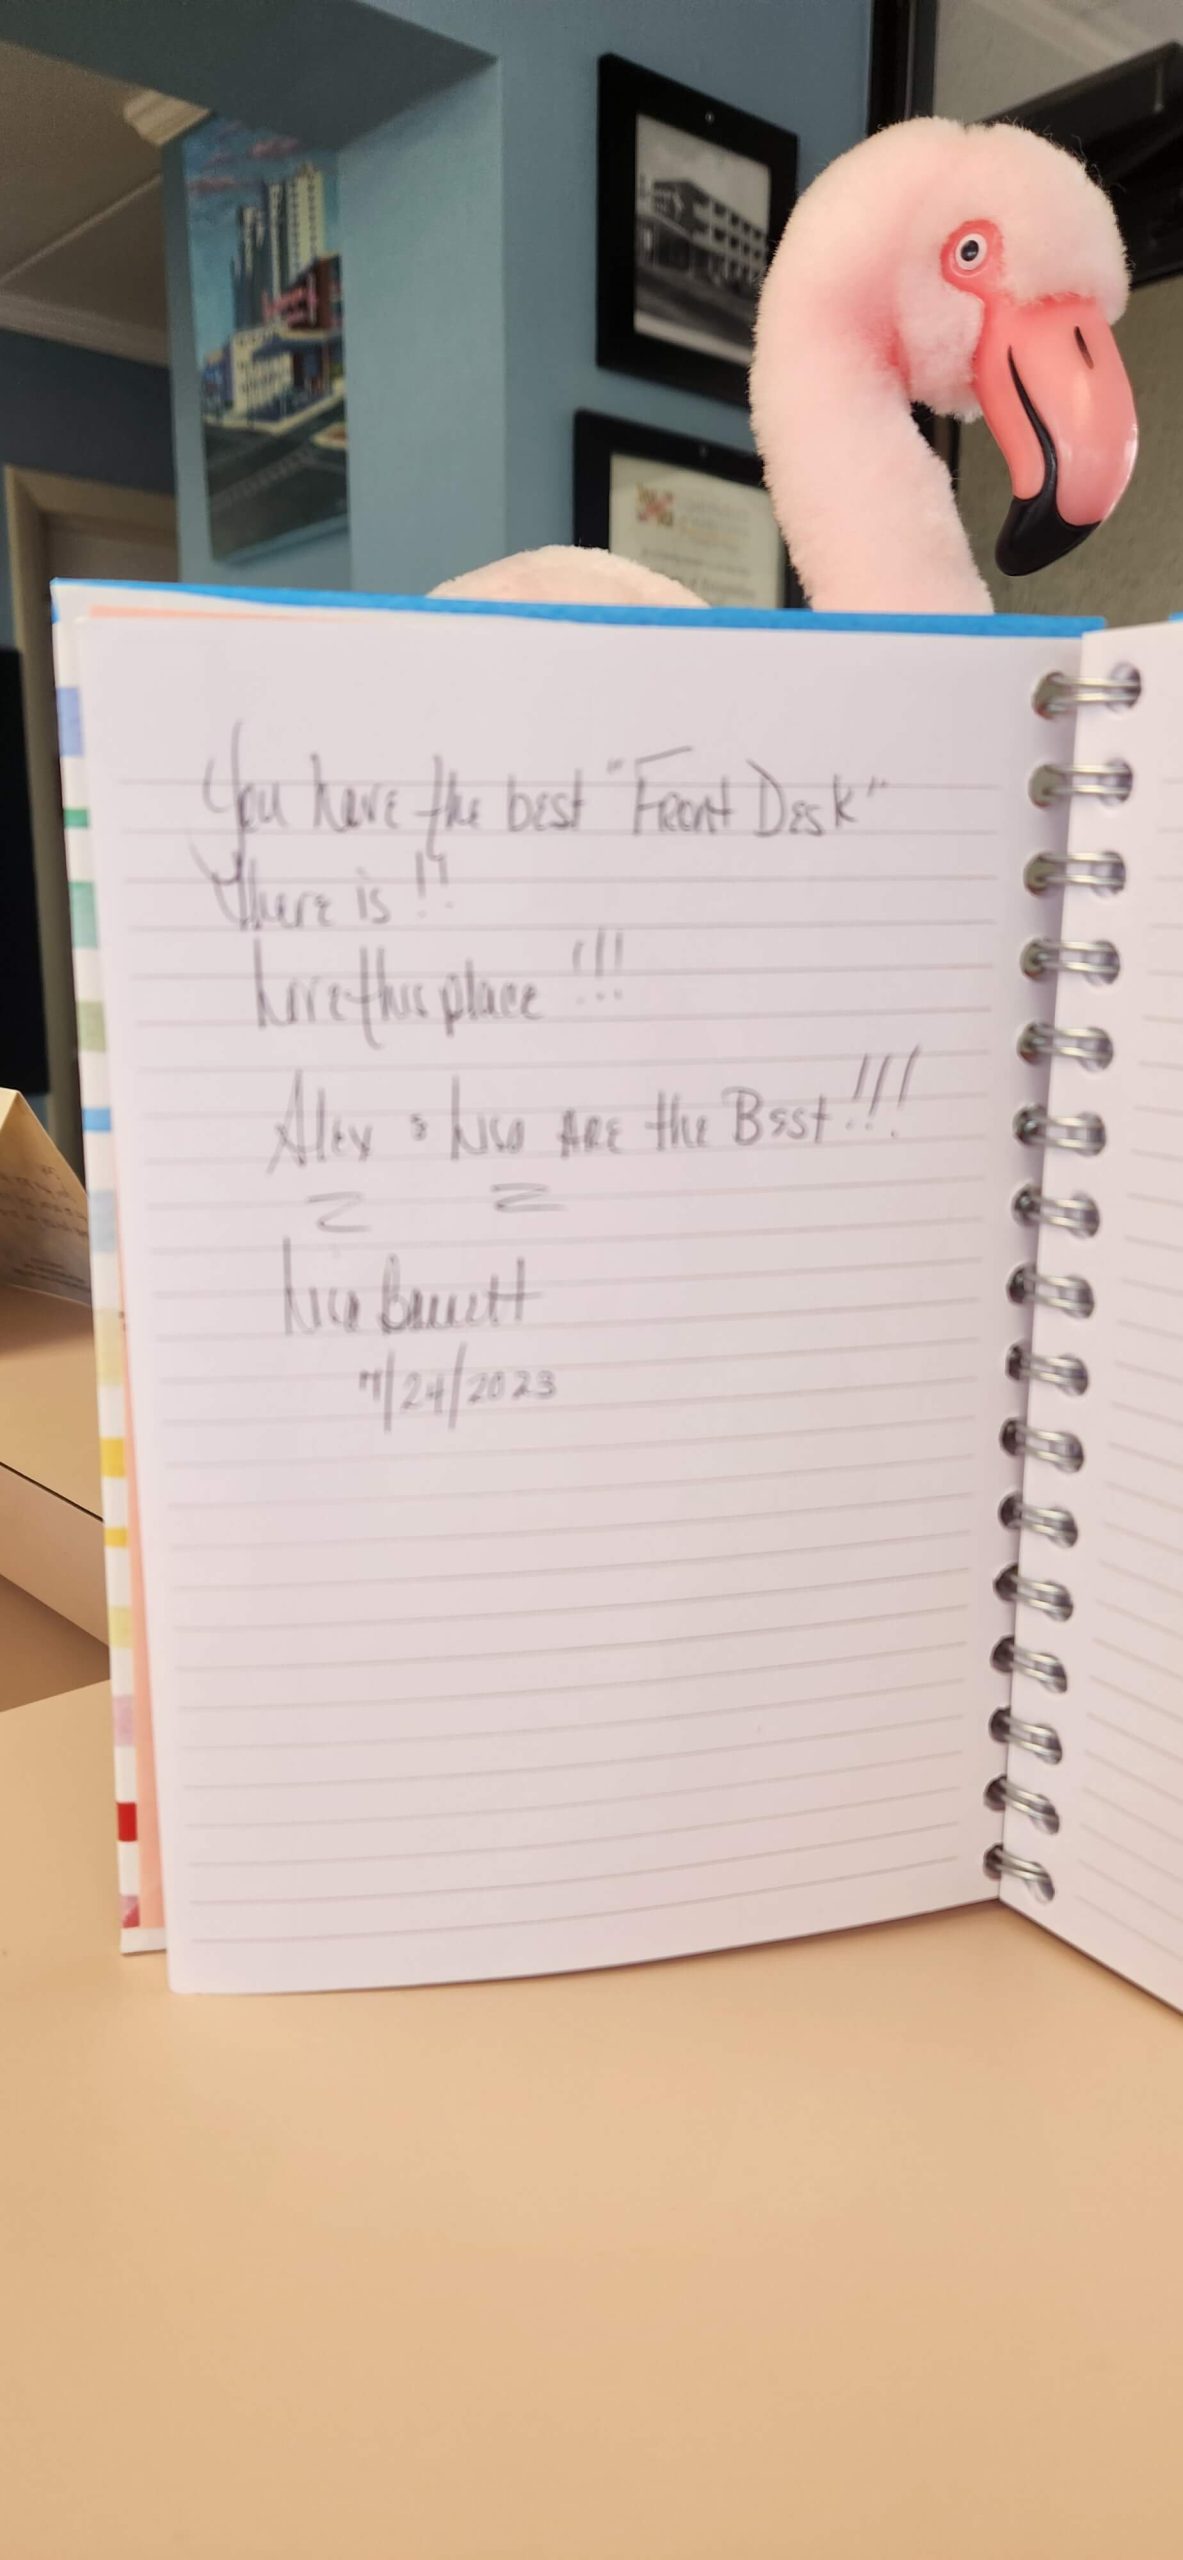 You have the best "Front Desk"
there is!!
Love this place!!!
Alex & Nico ARE the Best!!!
Barnett
7/24/2023